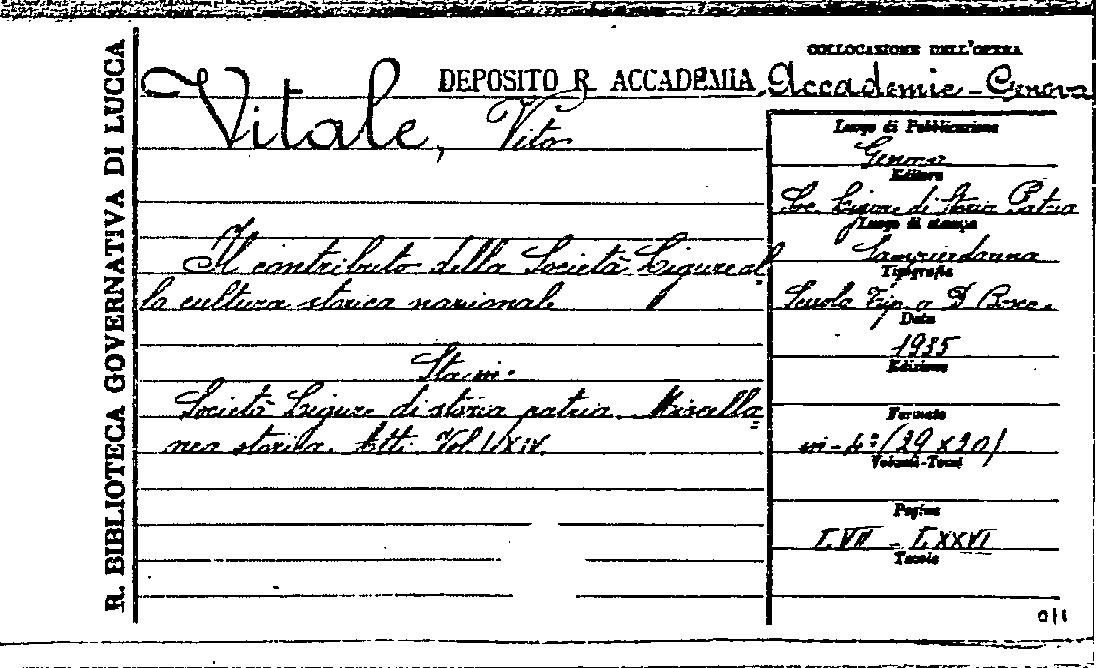 R. BIBLIOTECA GOVERNATIVA DI LUCCA
DEPOSITO R. ACCADEMIA
Vitale, Vito
Il contributo della Società Ligure al
la cultura storica nazionale
Sta in:
Società Ligure di storia patria. Miscella
nea storica. Atti. Vol. LXIV.
COLLOCAZIONE DELL'OPERA
Accademie - Genova
Luogo di Pubblicazione
Genova
Editore
Soc. Ligure di Storia Patria
Luogo di stampa
Sampierdarena
Tipografia
Scuola Tip. D. Bosco.
Data
1935
Edizione
Formato
in-4° (29 x 20)
Volumi-Tomi
Pagine
LVII - LXXVI
Tavole
0/1